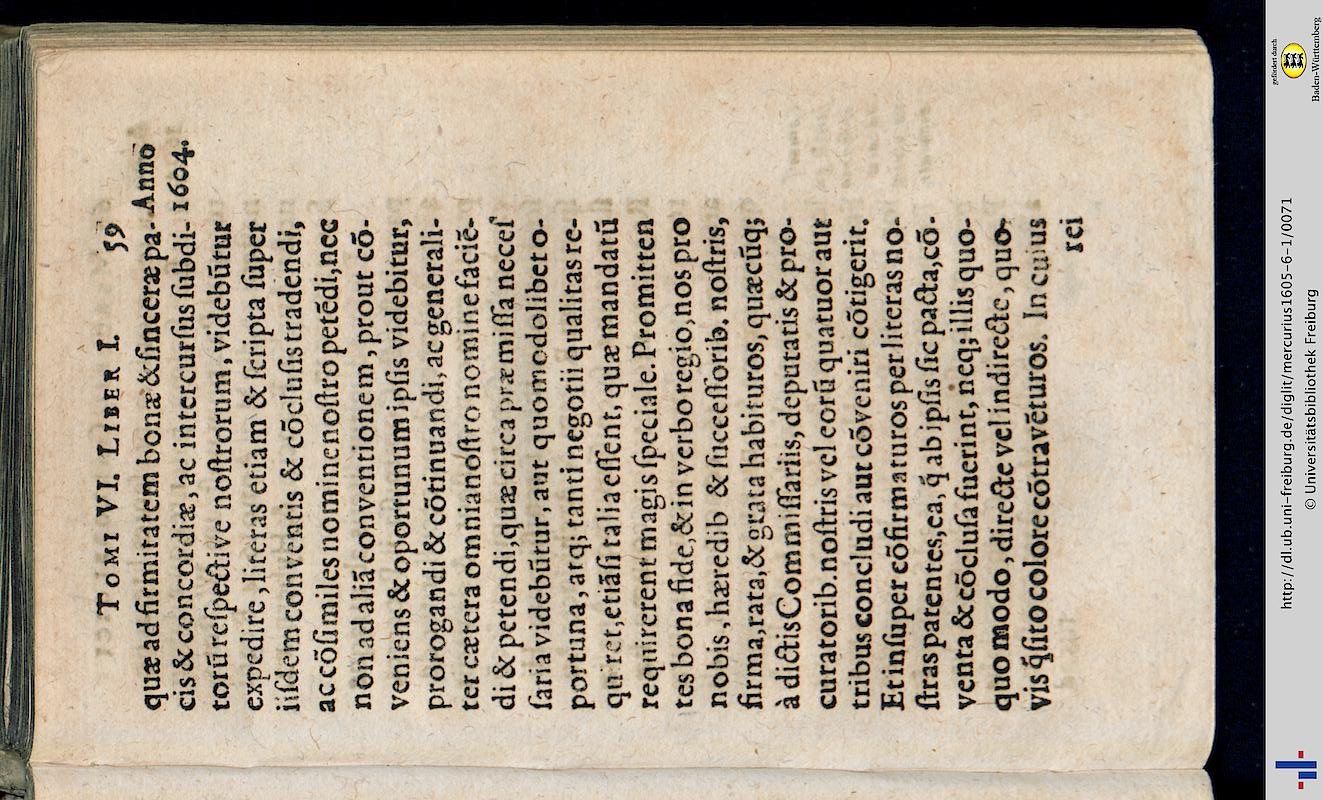 TOMI VI. LIBER I. 59
quæ ad firmitatem bonæ & ſinceræ pa- Anno
cis & concordiæ, ac intercurſus ſubdi- 1604.
torū reſpective noſtrorum, videbūtur
expedire, literas etiam & ſcripta ſuper
iiſdem conventis & cōcluſis tradendi,
ac cōſimiles nomine noſtro petēdi, nec
non ad aliā conventionem, prout cō-
veniens & oportunum ipſis videbitur,
prorogandi & cōtinuandi, ac generali-
ter cætera omnia noſtro nomine faciē-
di & petendi, quæ circa præmiſſa neceſ
ſaria videbūtur, aut quomodolibet o-
portuna, atq; tanti negotii qualitas re-
quiret, etiāſi talia eſſent, quæ mandatū
requirerent magis ſpeciale. Promitten
tes bona fide, & in verbo regio, nos pro
nobis, hæredib & ſucceſſorib. noſtris,
firma, rata, & grata habituros, quæcūq;
à dictis Commiſſariis, deputatis & pro-
curatorib. noſtris vel eorū quatuor aut
tribus concludi aut cōveniri cōtigerit.
Et inſuper cōfirmaturos per literas no-
ſtras patentes, ea, q̄ ab ipſis ſic pacta, cō-
venta & cōcluſa fuerint, neq; illis quo-
quo modo, directe vel indirecte, quo-
vis q̄ſito colore cōtravēturos. In cuius
rei
gefördert durch
Baden-Württemberg
http://dl.ub.uni-freiburg.de/diglit/mercurius1605-6-1/0071
© Universitätsbibliothek Freiburg